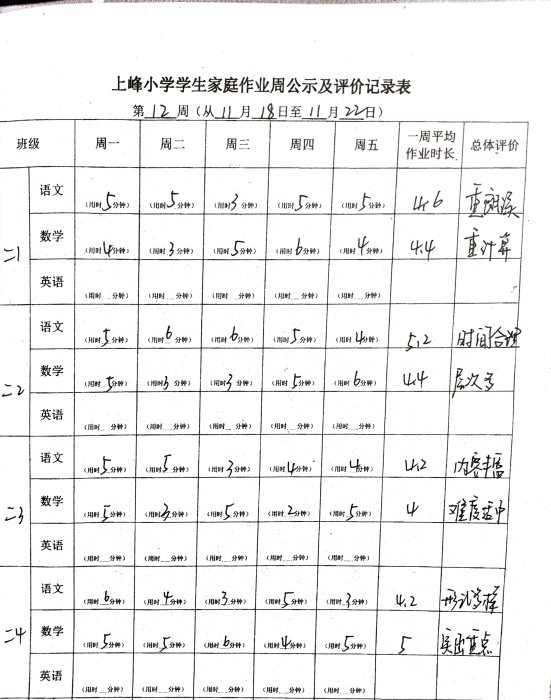 上峰小学学生家庭作业周公示及评价记录表
第12周（从11月18日至11月22日）
班级 周一 周二 周三 周四 周五 一周平均作业时长 总体评价
二1 语文 （用时5分钟） （用时5分钟） （用时3分钟） （用时5分钟） （用时5分钟） 4.6 重朗读
数学 （用时4分钟） （用时3分钟） （用时5分钟） （用时6分钟） （用时4分钟） 4.4 重计算
英语 （用时 分钟） （用时 分钟） （用时 分钟） （用时 分钟） （用时 分钟）
二2 语文 （用时5分钟） （用时6分钟） （用时6分钟） （用时5分钟） （用时4分钟） 5.2 时间合理
数学 （用时5分钟） （用时3分钟） （用时3分钟） （用时5分钟） （用时6分钟） 4.4 层次多
英语 （用时 分钟） （用时 分钟） （用时 分钟） （用时 分钟） （用时 分钟）
二3 语文 （用时5分钟） （用时5分钟） （用时3分钟） （用时4分钟） （用时4分钟） 4.2 内容丰富
数学 （用时5分钟） （用时3分钟） （用时5分钟） （用时2分钟） （用时5分钟） 4 难度适中
英语 （用时 分钟） （用时 分钟） （用时 分钟） （用时 分钟） （用时 分钟）
二4 语文 （用时6分钟） （用时4分钟） （用时3分钟） （用时5分钟） （用时3分钟） 4.2 形式多样
数学 （用时5分钟） （用时5分钟） （用时6分钟） （用时4分钟） （用时5分钟） 5 突出重点
英语 （用时 分钟） （用时 分钟） （用时 分钟） （用时 分钟） （用时 分钟）